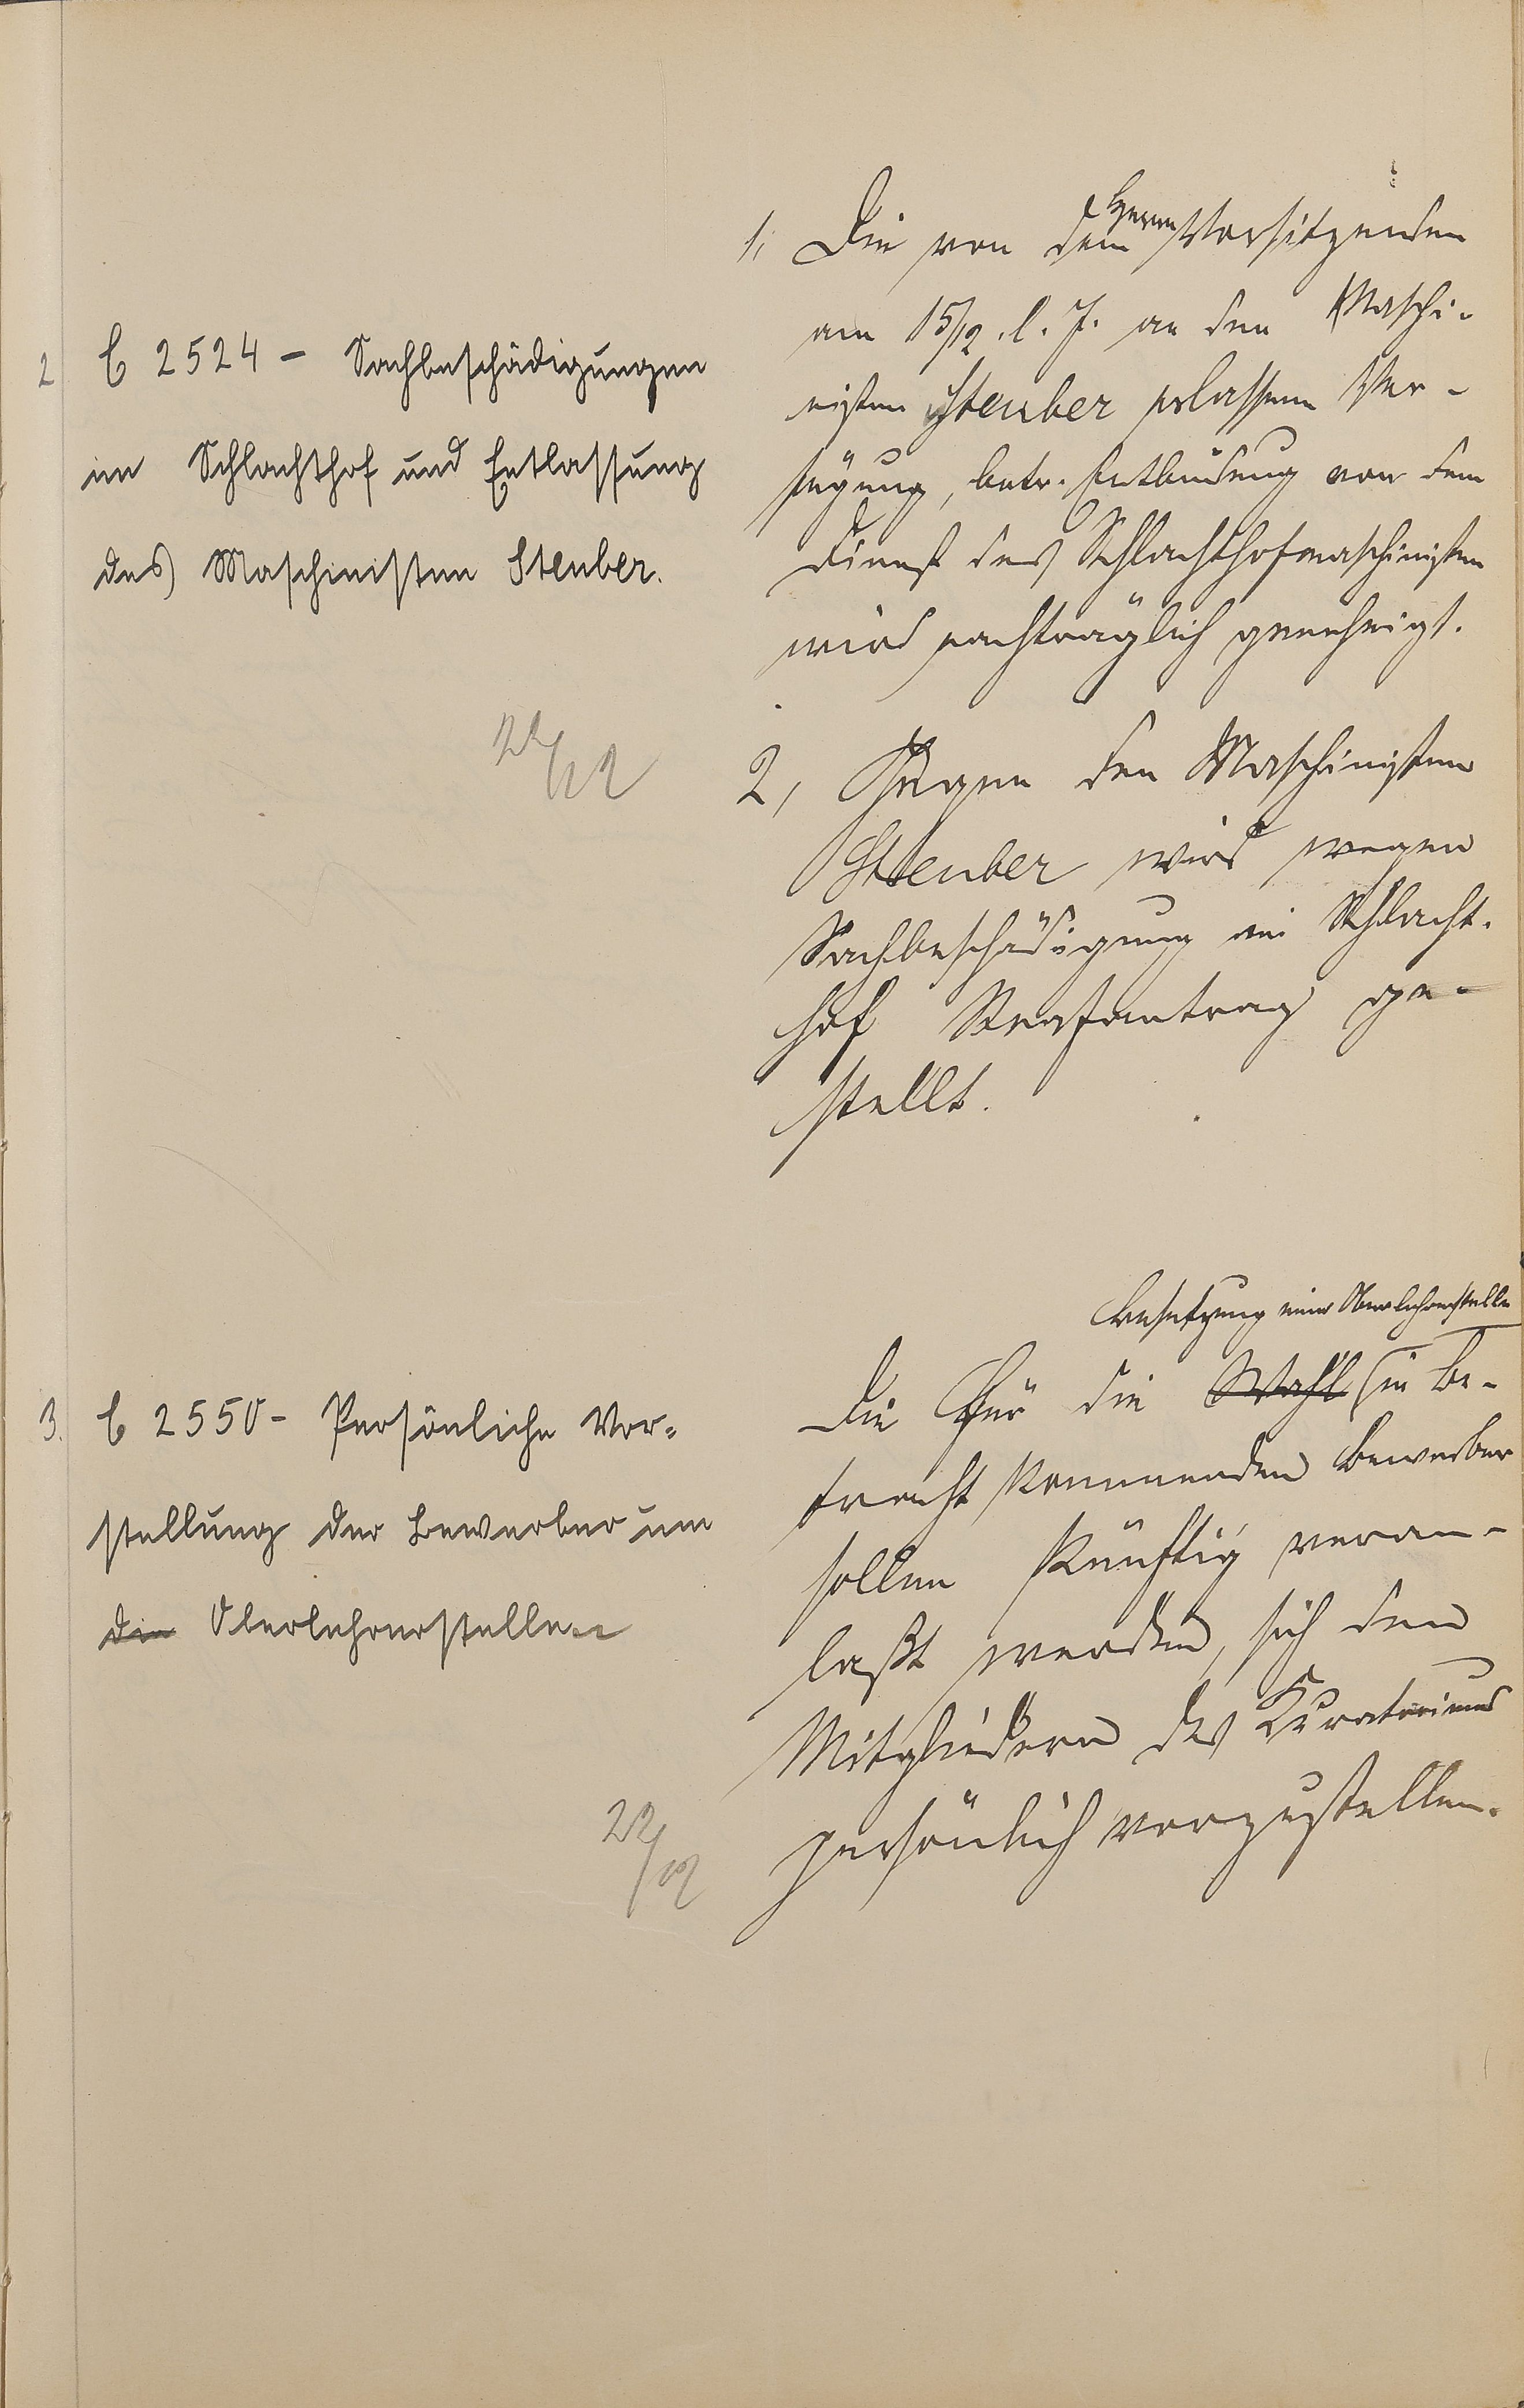 2 C 2524 - Sachbeschädigungen
im Schlachthof und Entlassung
des Maschinisten Steuber.
22/12
1, Die von dem Herrn Vorsitzenden
am 15/12. l. J. an den Maschi-
nisten Steuber erlassene Ver-
fügung, betr. Entbindung von dem
Dienst des Schlachthofmaschinisten
wird nachträglich genehmigt.
2, Gegen den Maschinisten
Steuber wird wegen
Sachbeschädigung im Schlacht-
hof Strafantrag ge-
stellt.
3. C 2550 - Persönliche Vor-
stellung der Bewerber um
die Oberlehrerstellen
22/12
Besetzung einer Oberlehrerstelle
Die für die Wahl in Be-
tracht kommenden Bewerber
sollen künftig veran-
laßt werden, sich den
Mitgliedern des Kuratoriums
persönlich vorzustellen.